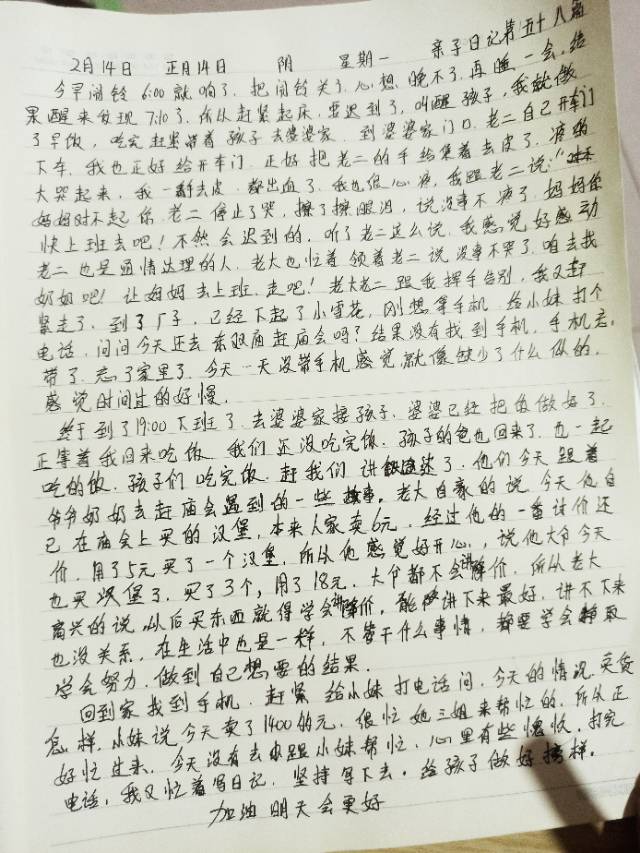 亲子日记第五十八篇
2月14日 正月14日 阴 星期一
今早闹铃6:00就响了.把闹铃关了.心想晚不了.再睡一会.结
果醒来发现7:10了.所以赶紧起床.要迟到了,叫醒孩子,我就做
了早饭,吃完赶紧带着孩子去婆婆家.到婆婆家门口.老二自己开车门
下车.我也正好给开车门.正好把老二的手给集着去皮了.疼的
大哭起来,我一看去皮.都出血了.我也很心疼,我跟老二说:"
妈妈对不起你.老二停止了哭,擦了擦眼泪,说没事不疼了.妈妈你
快上班去吧!不然会迟到的.听了老二这么说.我感觉好感动
老二也是通情达理的人.老大也忙着领着老二说没事不哭了.咱去找
奶奶吧!让妈妈去上班.走吧!老大老二跟我挥手告别,我又赶
紧走了.到了厂子,已经下起了小雪花,刚想拿手机.给小妹打个
电话,问问今天还去东双庙赶庙会吗?结果没有找到手机,手机忘
带了.忘了家里了.今天一天没带手机感觉就像缺少了什么似的.
感觉时间过的好慢.
终于到了19:00下班了.去婆婆家接孩子.婆婆已经把饭做好了.
正等着我回来吃饭.我们还没吃完饭.孩子的爸也回来了.也一起
吃的饭.孩子们吃完饭.赶我们讲述了.他们今天跟着
爷爷奶奶去赶庙会遇到的一些故事.老大自豪的说今天他自
己在庙会上买的汉堡,本来人家卖6元.经过他的一番讨价还
价.用了5元买了一个汉堡.所以他感觉好开心.,说他大爷今天
也买汉堡了.买了3个,用了18元.大爷都不会讲价.所以老大
高兴的说.以后买东西就得学会讲价,能讲下来最好,讲不下来
也没关系.在生活中也是一样,不管干什么事情,都要学会争取
学会努力.做到自己想要的结果.
回到家找到手机.赶紧给小妹打电话问,今天的情况.卖货
怎样,小妹说今天卖了1400的元.很忙她三姐来帮忙的.所以正
好忙过来.今天没有去跟小妹帮忙.心里有些愧疚.打完
电话,我又忙着写日记.坚持写下去.给孩子做好榜样.
加油明天会更好